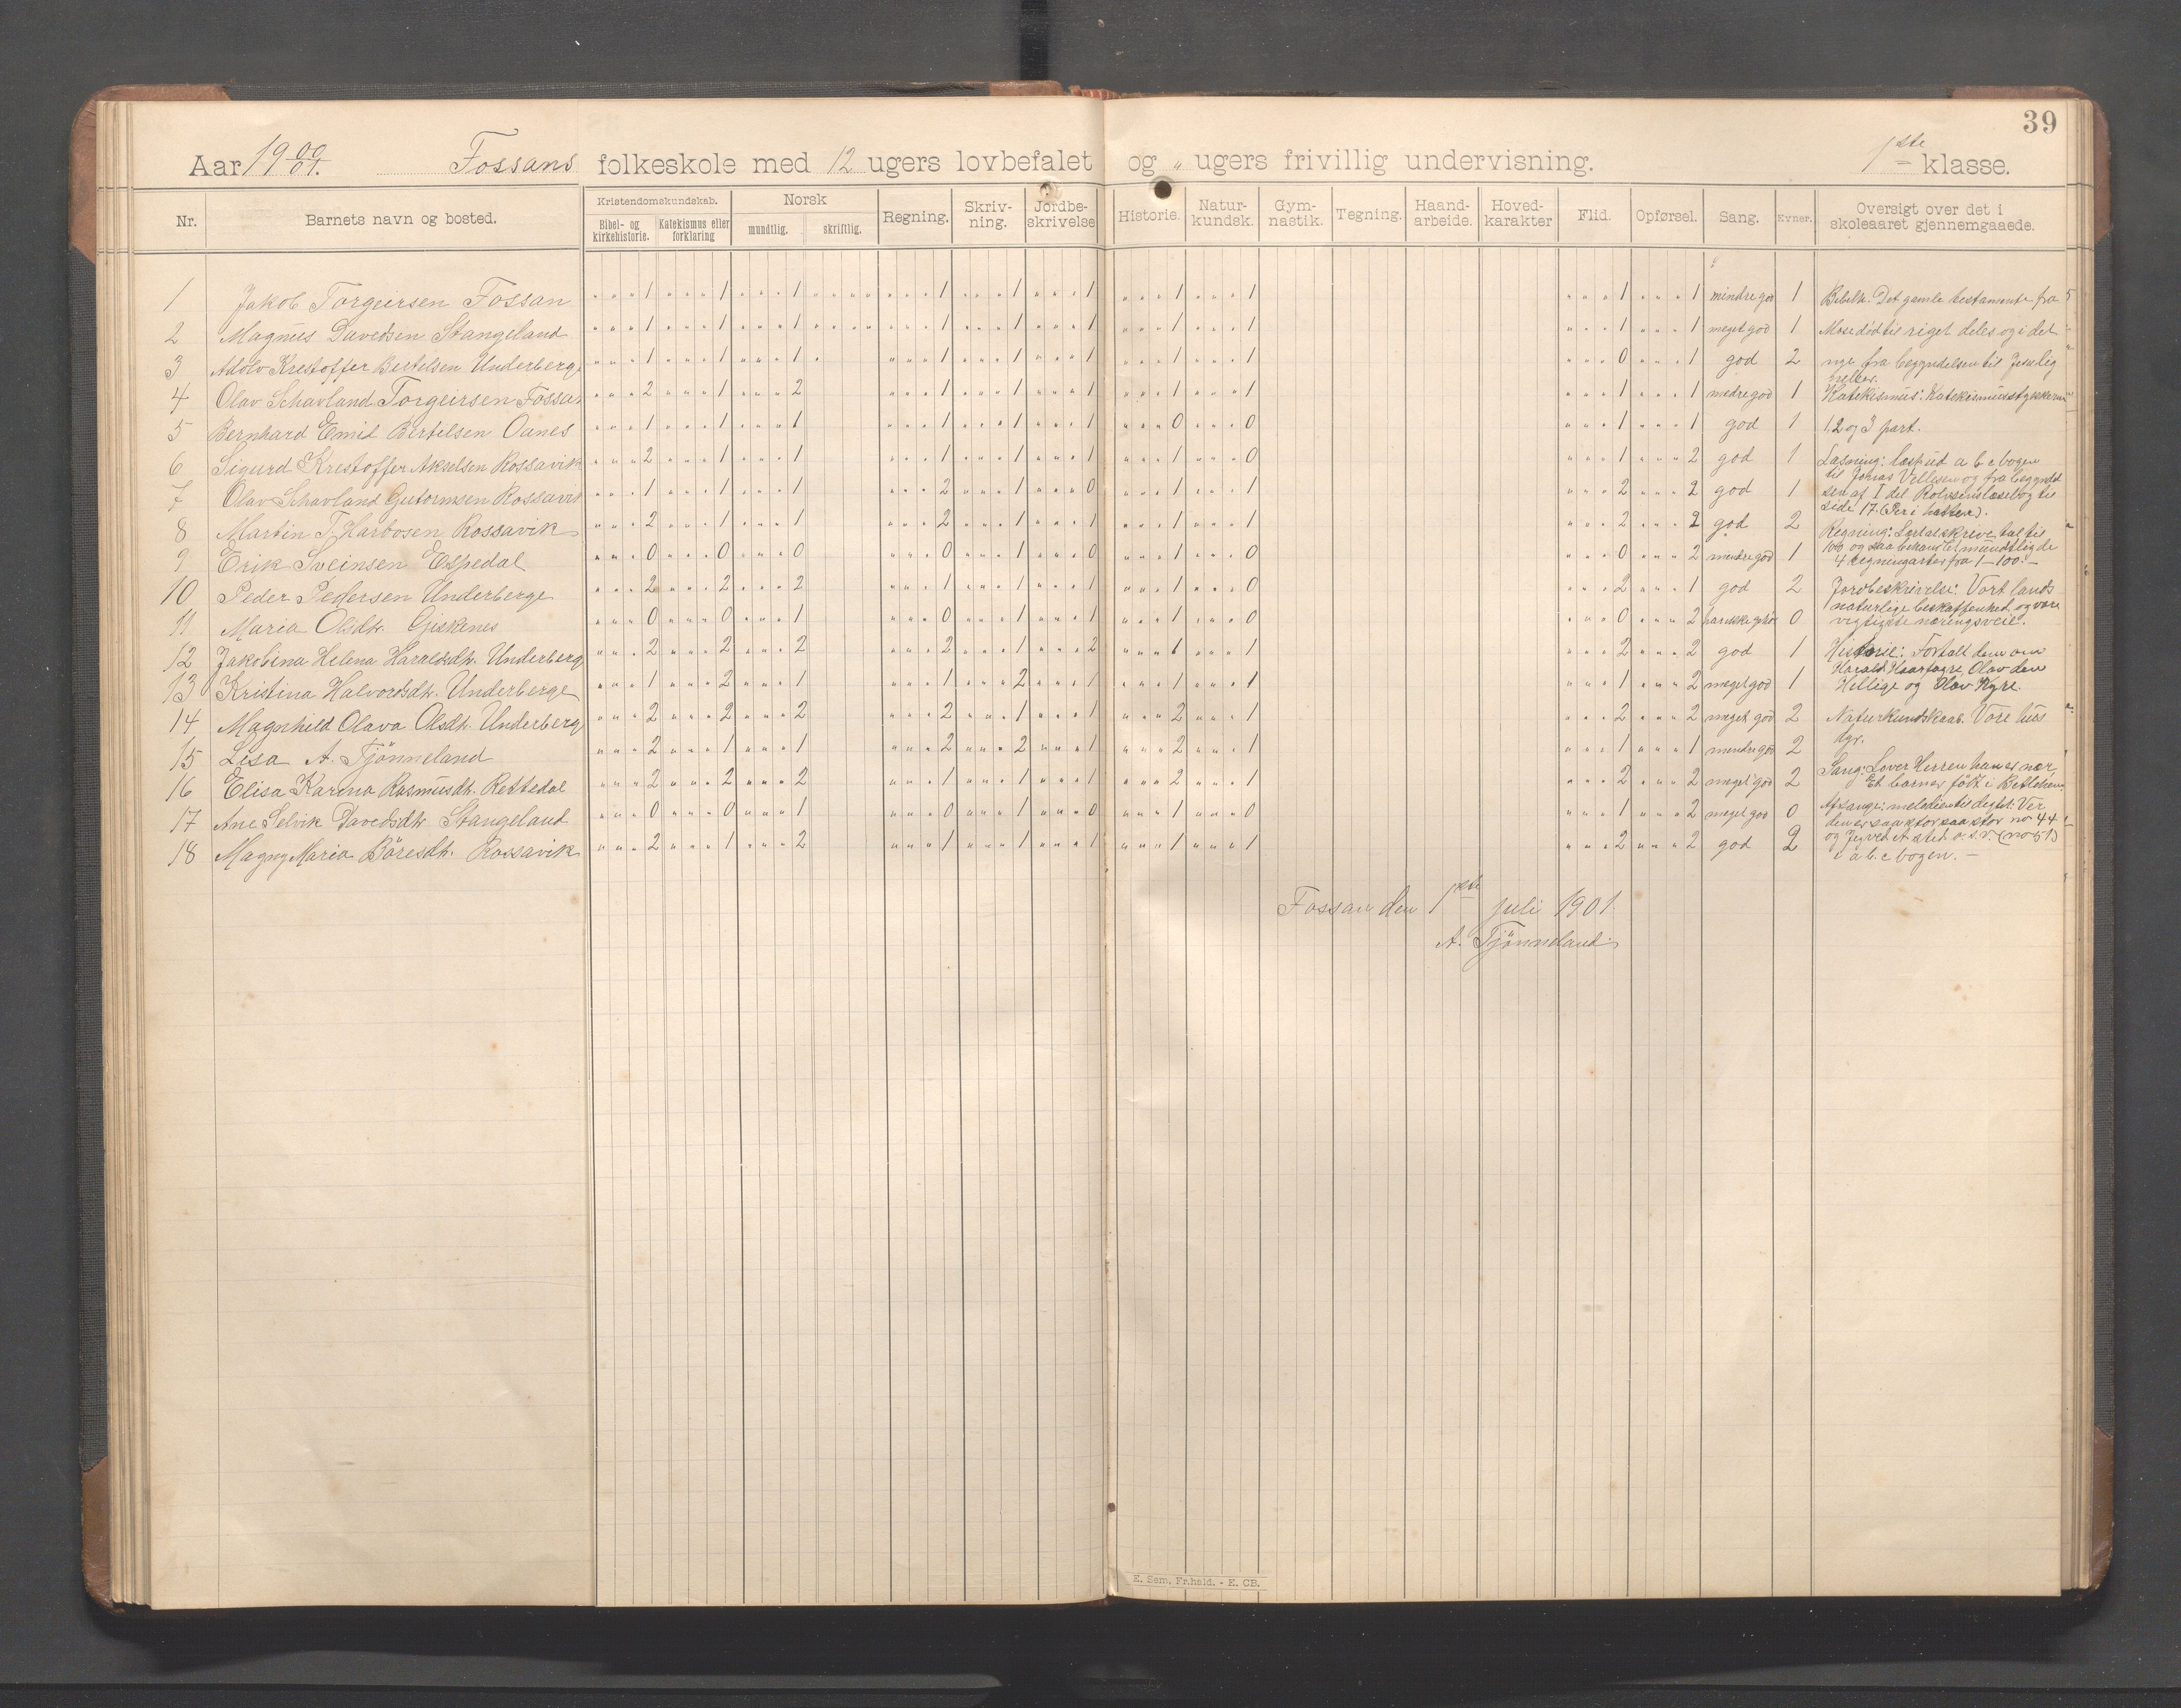 39
Aar 1900/01. Fossans folkeskole med 12 ugers lovbefalet og „ ugers frivillig undervisning. 1ste klasse.
Nr. Barnets navn og bosted. Kristendomskundskab. Bibel- og kirkehistorie. Katekismus eller forklaring Norsk mundtlig. skriftlig. Regning. Skriv-ning. Jordbe-skrivelse Historie. Natur-kundsk. Gym-nastik. Tegning. Haand-arbeide. Hoved-karakter Flid. Opførsel. Sang. Evner. Oversigt over det i skoleaaret gjennemgaaede.
1 Jakob Torgeirsen Fossan 1 1 1 1 1 1 1 1 1 1 mindre god 1
2 Magnus Davedsen Stangeland 1 1 1 1 1 1 1 1 1 1 meget god 1
3 Adolv Krestoffer Bertelsen Underberge 1 1 1 1 1 1 1 1 0 1 god 2
4 Olav Schavland Torgeirsen Fossan 2 1 2 1 1 1 1 1 1 1 medre god 1
5 Bernhard Emil Bertelsen Oanes 1 1 1 1 1 1 0 0 1 1 god 1
6 Sigurd Krestoffer Akselsen Rossavik 2 1 1 1 1 1 1 0 1 2 god 1
7 Olav Schavland Gutormsen Rossavik 1 1 1 2 1 0 1 1 2 2 god 1
8 Martin T. Harbosen Rossavik 2 1 1 2 1 1 1 1 2 2 god 2
9 Erik Sveinsen Espedal 0 0 0 0 1 0 1 0 0 2 mendre god 1
10 Peder Pedersen Underberge 2 2 2 1 1 1 1 0 2 1 god 2
11 Maria Olsdtr. Gjeskenes 0 0 1 0 1 1 1 0 0 2 har ikke 0
12 Jakobina Helena Haraldsdtr. Underberg 2 2 2 2 1 2 1 1 2 2 god 1
13 Kristina Halvordsdtr. Underberge 1 2 1 1 2 1 1 1 1 2 meget god 1
14 Magnhild Olava Olsdtr. Underberg 2 2 2 2 1 1 2 1 2 2 meget god 2
15 Lisa A. Tjönneland 2 1 1 2 2 1 2 1 1 1 mendre god 2
16 Elisa Karina Rasmusdtr. Rettedal 2 2 2 1 1 1 2 1 2 2 meget god 2
17 Ane Selvik Davedsdtr Stangeland 0 0 1 0 1 0 1 0 1 2 meget god 0
18 Magny Maria Böresdtr. Rossavik 2 1 2 1 1 1 1 1 2 2 god 2
Bibelh. Det gamle testamente fra
Mose död til riget deles og i det
nye fra begyndelsen til Jesu lig
nelser.
Katekismus: Katekismusstykkerne
1. 2 og 3 part.
Læsning: læst ud a b c bogen
til Jonas Vellesen og fra begyndel
sen af I del Rolvsens læsebog til
side 17. (Per i hatten).
Regning: Lært at skrive tal til
100 og behandlet mundtlig de
4 regningarter fra 1–100. –
Jordbeskrivelse: Vort lands
naturlige beskaffenhed og vore
vigtigste næringsveie.
Historie: Fortalt dem om
Harald Haarfagre, Olav den
Hellige og Olav Kyre.
Naturkundskab. Vore hus
dyr.
Sang: Lover Herren han er nær,
Et barn er födt i Betlehem,
Afsange: melodien til digtet: Ver
den er saa stor saa stor no 44
og Jeg ved et sted o. s. v. (no 51)
i a b. c bogen. –
Fossan den 1ste juli 1901.
A. Tjönneland.
E. Sem, Fr.hald. - E. CB.